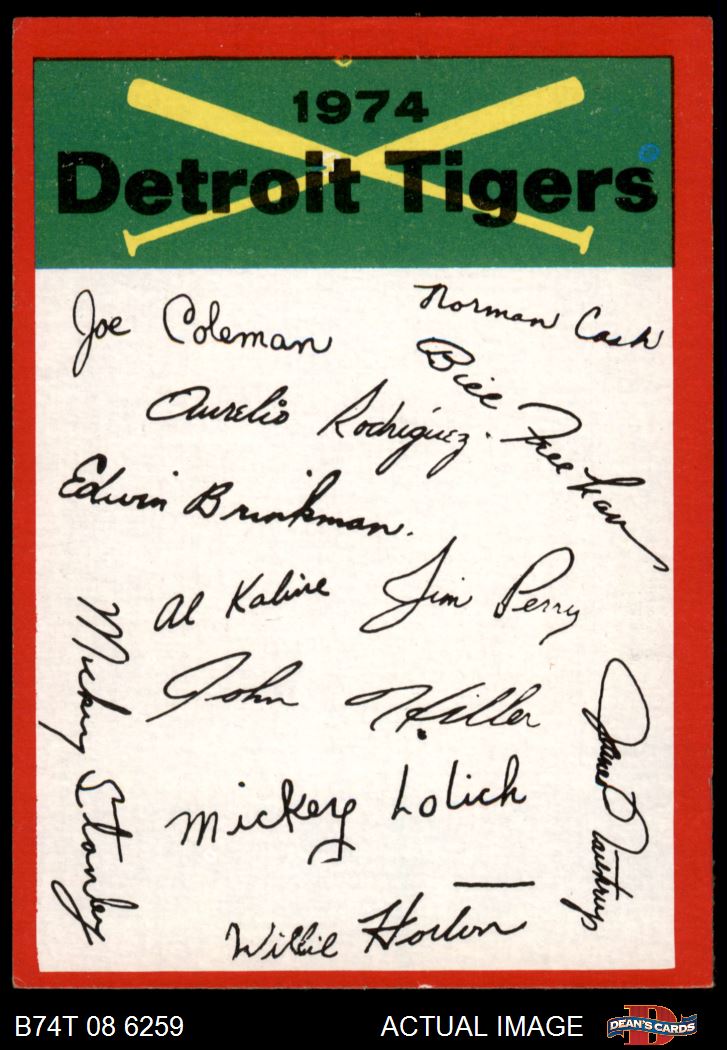 1974
Detroit Tigers
Joe Coleman
Norman Cash
Aurelio Rodriguez.
Bill Freehan
Edwin Brinkman.
Al Kaline
Jim Perry
Mickey Stanley
John Hiller
James Northrup
Mickey Lolich
Willie Horton
B74T 08 6259
ACTUAL IMAGE
D
DEAN'S CARDS